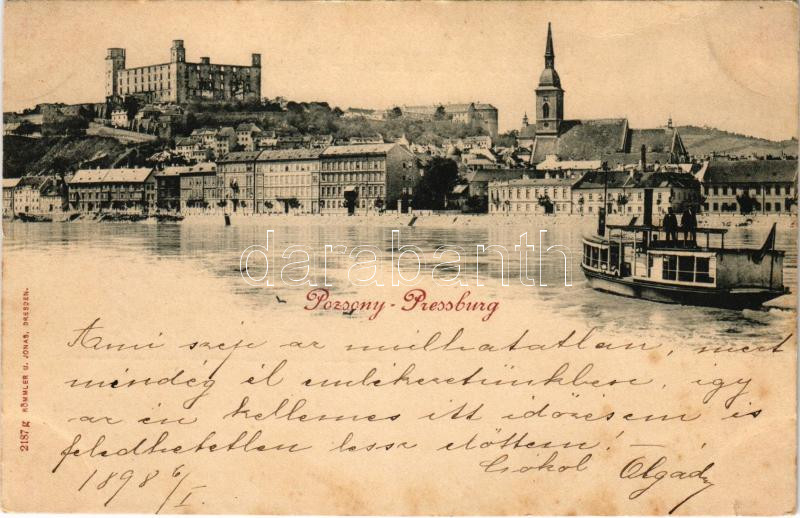 darabanth
Pozsony - Pressburg
2187g RÖMMLER U. JONAS, DRESDEN.
Ami szép az mulhatatlan, mert
mindég él emlékezetünkben, igy
az én kellemes itt időzésem is
feledhetetlen lessz előttem! —
Csókol Olgád
1898 6/I.